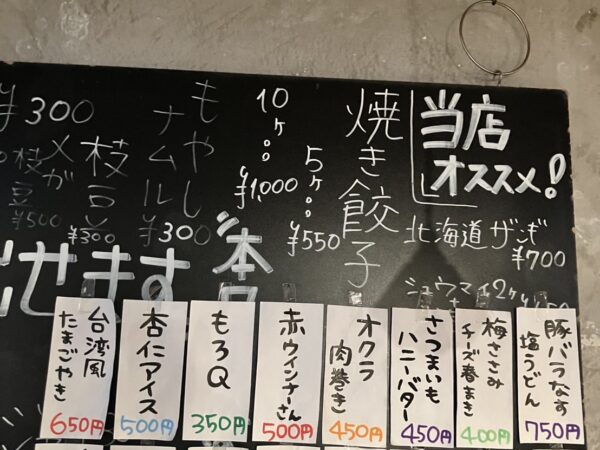 当店
オススメ!
北海道ザンギ
¥700
焼き餃子
5ヶ
¥550
10ヶ
¥1,000
もやし
ナムル
¥300
枝豆
¥300
¥500
¥300
せます
豚バラなす
塩うどん
750円
梅ささみ
チーズ春まき
400円
さつまいも
ハニーバター
450円
オクラ
肉巻き
450円
赤ウインナーさん
500円
もろQ
350円
杏仁アイス
500円
台湾風
たまごやき
650円